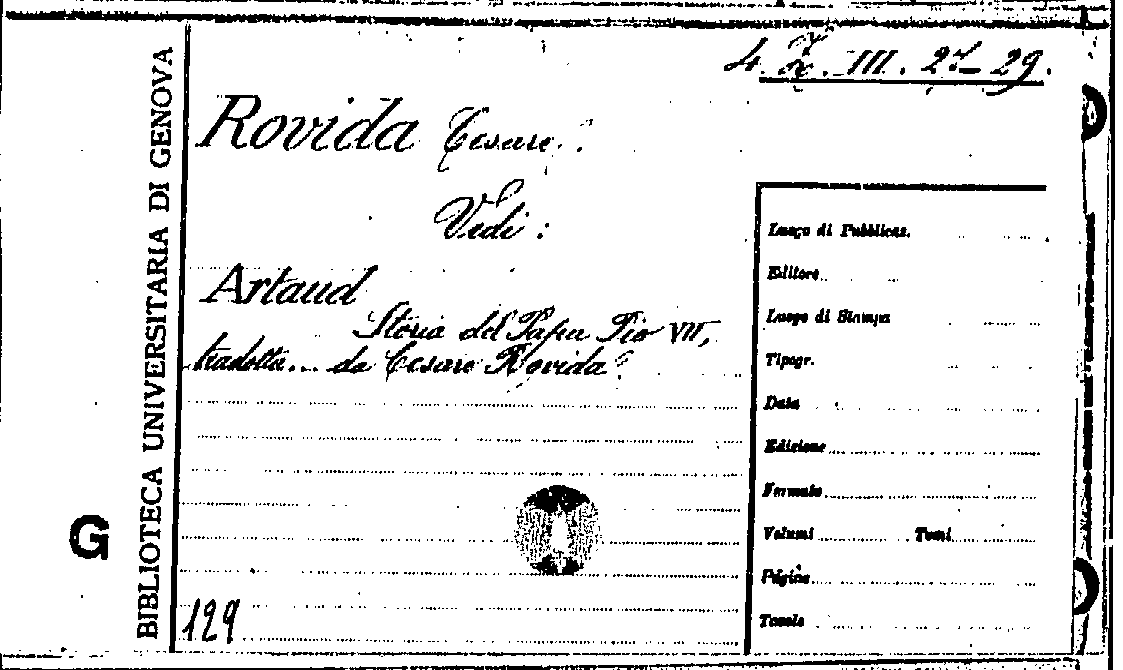 4. Z. III. 27-29.
Rovida Cesare.
Vedi :
Artaud
Storia del Papa Pio VII,
tradotta... da Cesare Rovida
Luogo di Pubblicaz.
Editore
Luogo di Stampa
Tipogr.
Data
Edizione
Formato
Volumi Tomi
Pagine
Tavole
129
BIBLIOTECA UNIVERSITARIA DI GENOVA
G